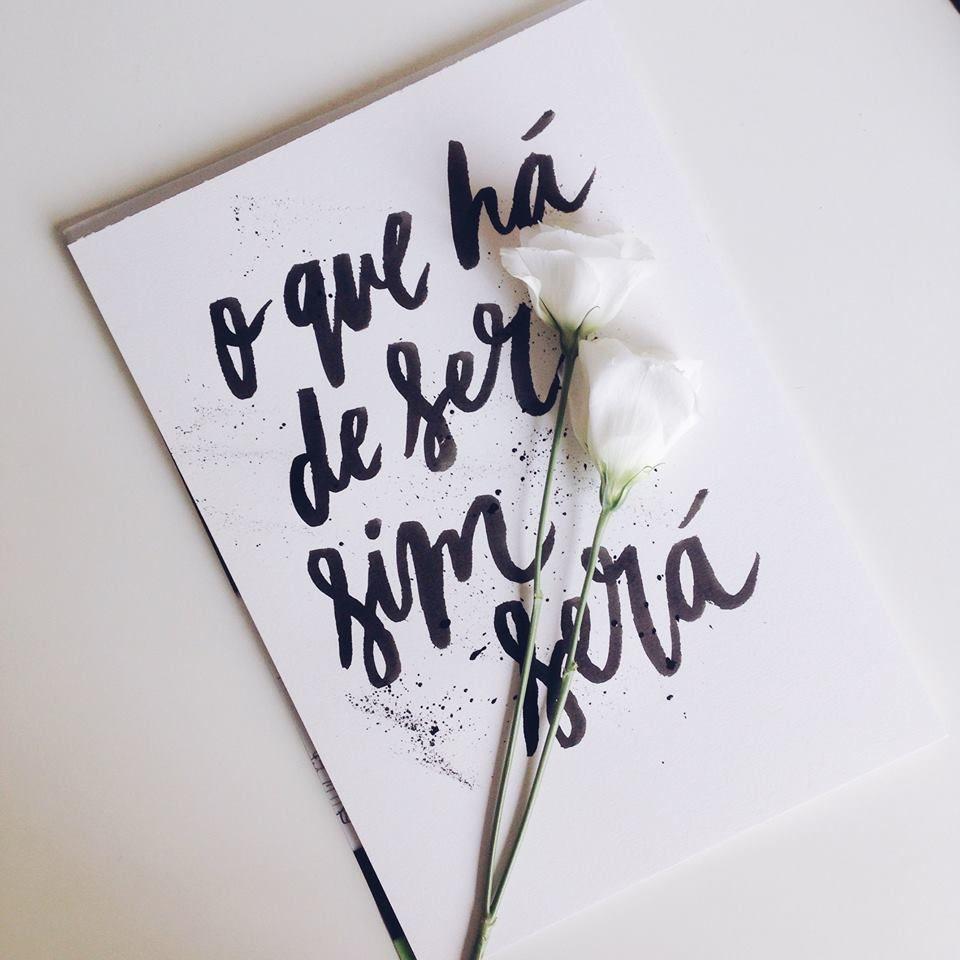 o que há
de ser
sim
será